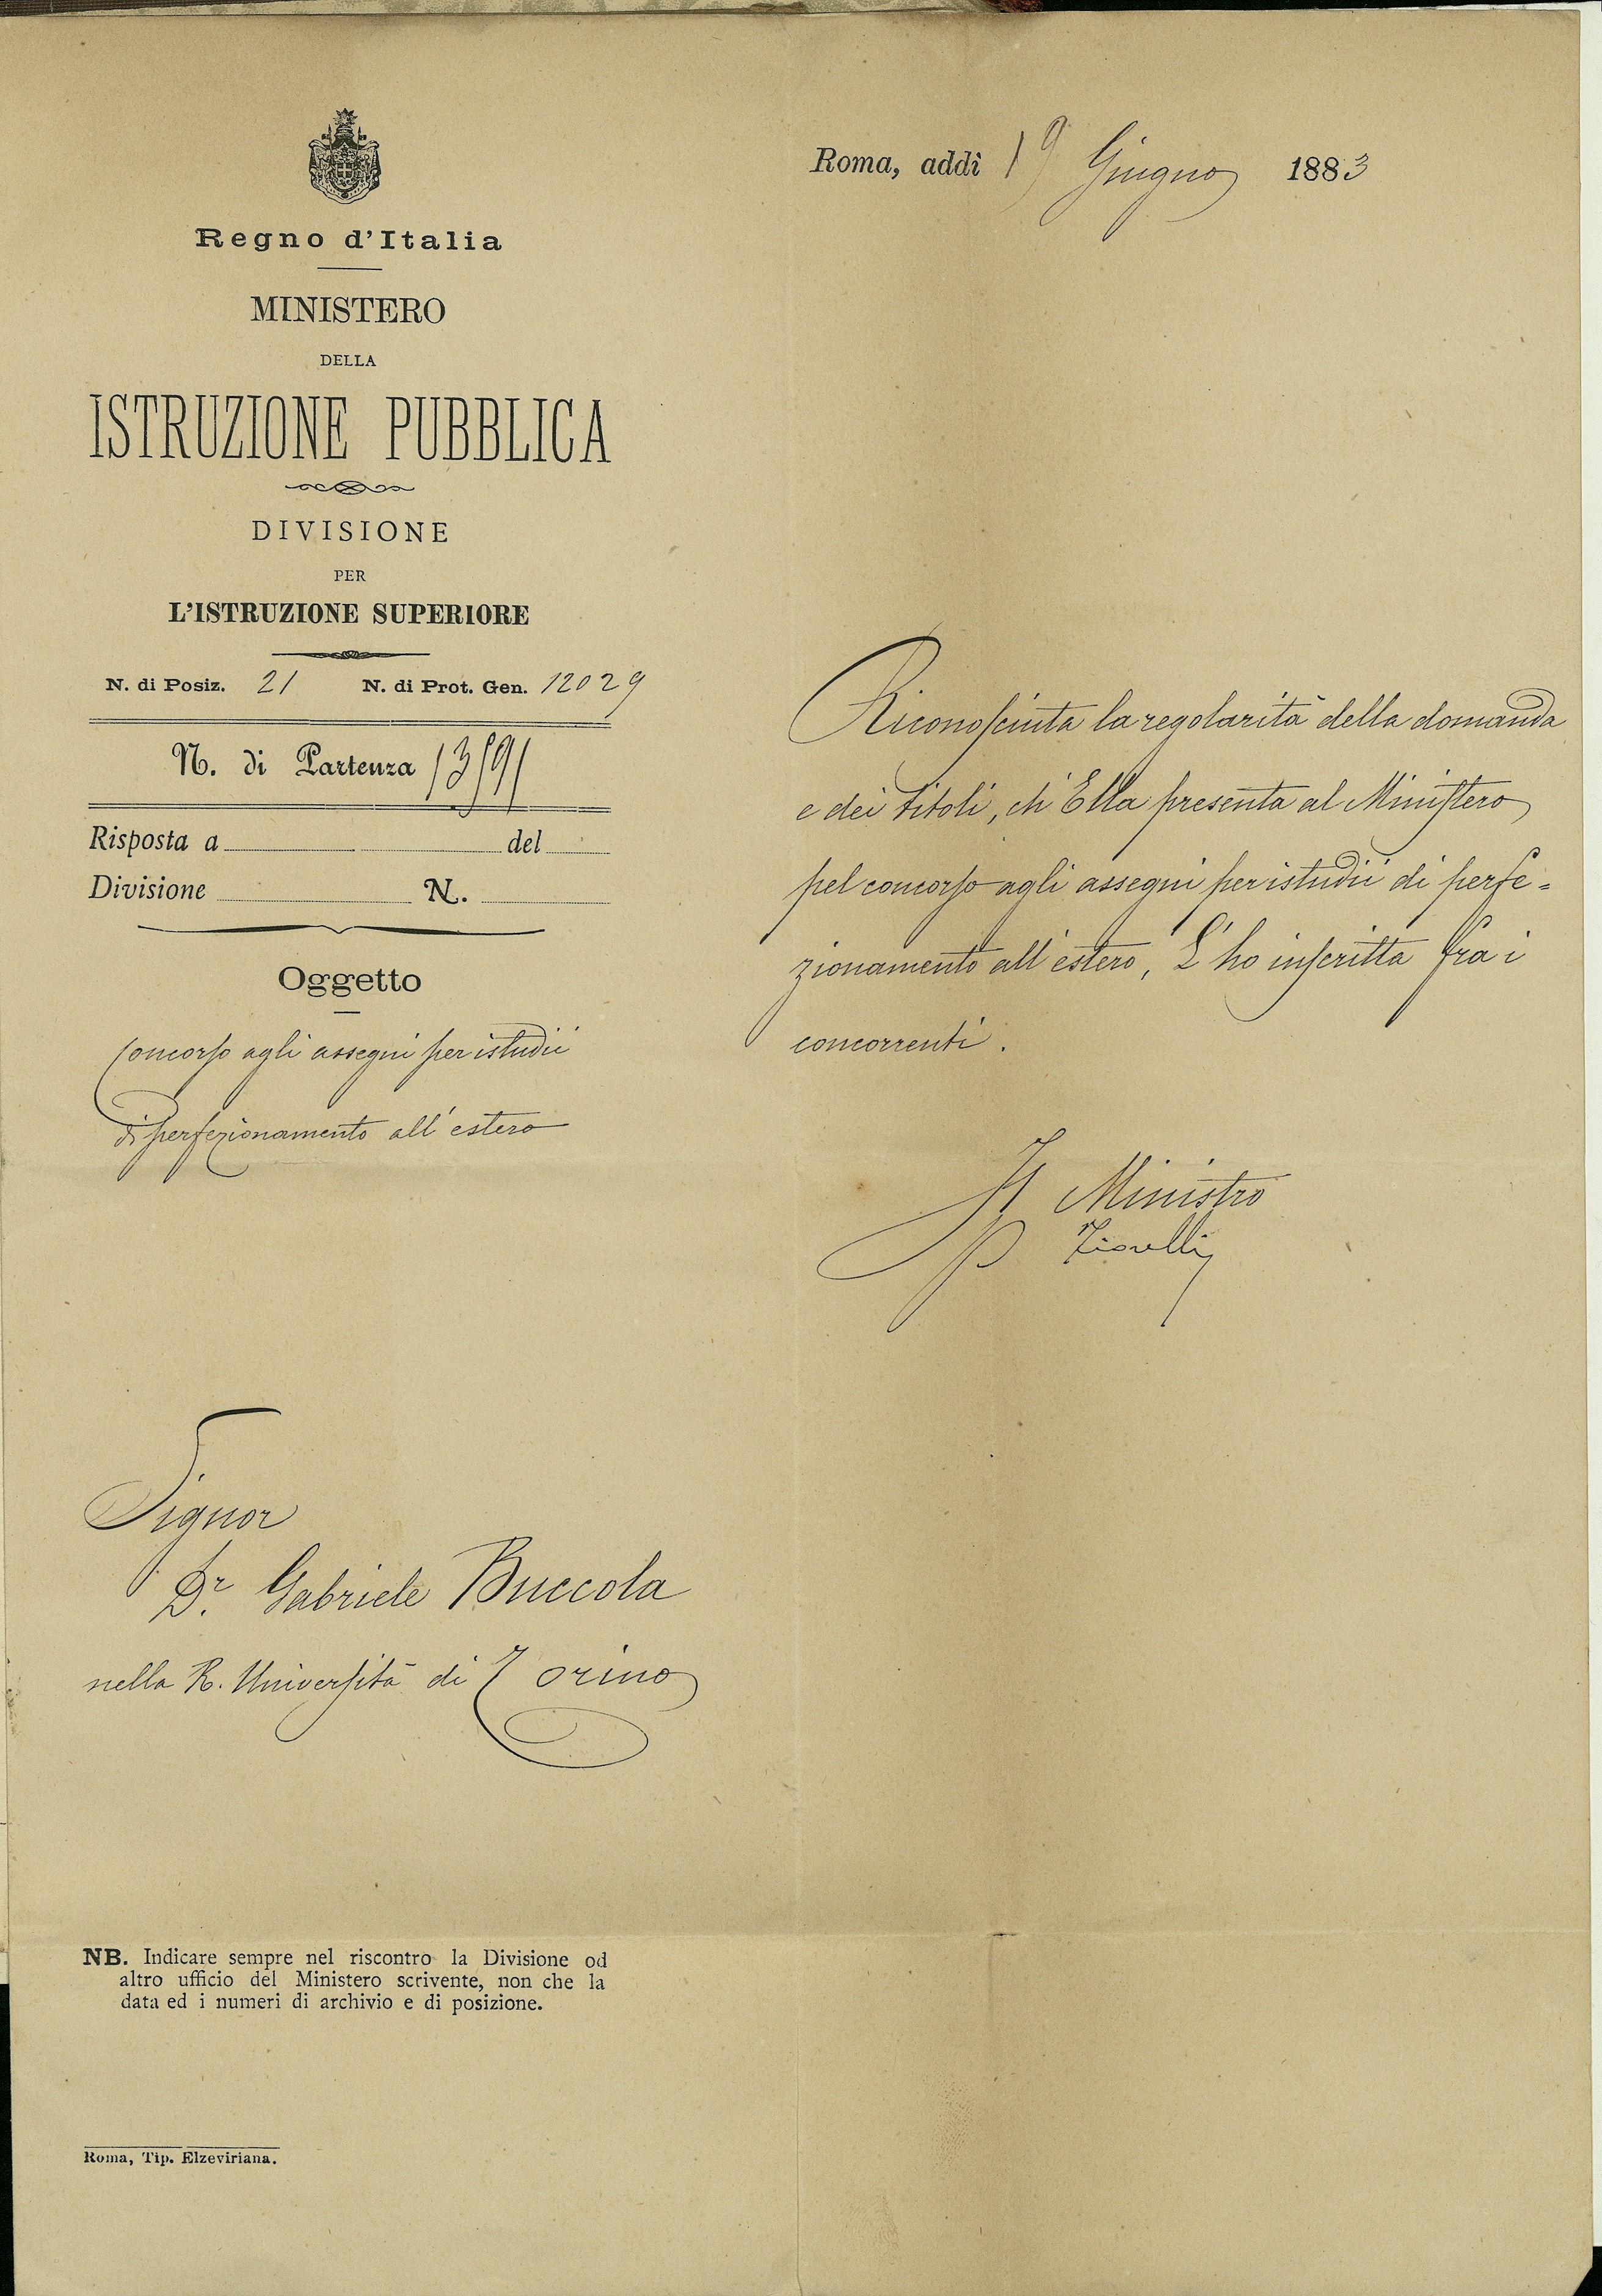 Regno d'Italia
MINISTERO
DELLA
ISTRUZIONE PUBBLICA
DIVISIONE
PER
L'ISTRUZIONE SUPERIORE
N. di Posiz. 21 N. di Prot. Gen. 12029
N. di Partenza
Risposta a del
Divisione N.
Oggetto
Concorso agli assegni per istudii
di perfezionamento all'estero
Signor
Dr. Gabriele Buccola
nella R. Università di Torino
NB. Indicare sempre nel riscontro la Divisione od
altro ufficio del Ministero scrivente, non che la
data ed i numeri di archivio e di posizione.
Roma, Tip. Elzeviriana.
Roma, addì 19 Giugno 1883
Riconosciuta la regolarità della domanda
e dei titoli, ch'Ella presenta al Ministero
pel concorso agli assegni per istudii di perfe=
zionamento all'estero, L'ho inscritta fra i
concorrenti.
Il Ministro
p Fiorelli